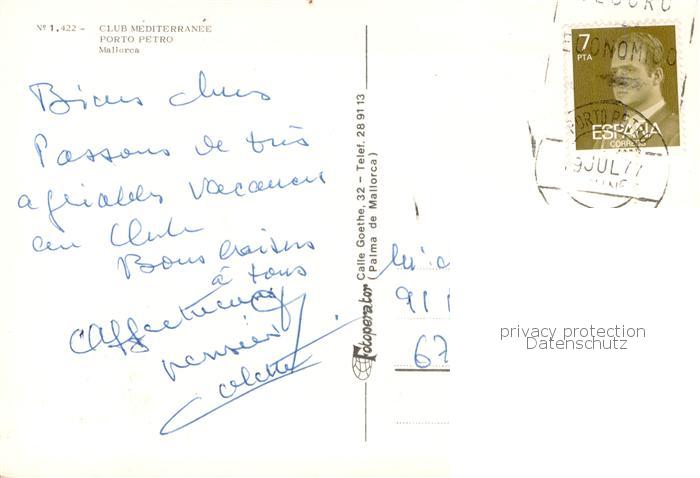 Nº 1.422 - CLUB MEDITERRANÉE
PORTO PETRO
Mallorca
Biens chers
Passons de très
agréables vacances
au Club
Bons baisers
à tous
Affectueuses
pensées
Colette
Fotoperator Calle Goethe, 32 - Telef. 28 91 13
(Palma de Mallorca)
7
PTA
ESPAÑA
CORREOS
ECONOMICO
PORTO PETRO
19 JUL 77
91
67
privacy protection
Datenschutz